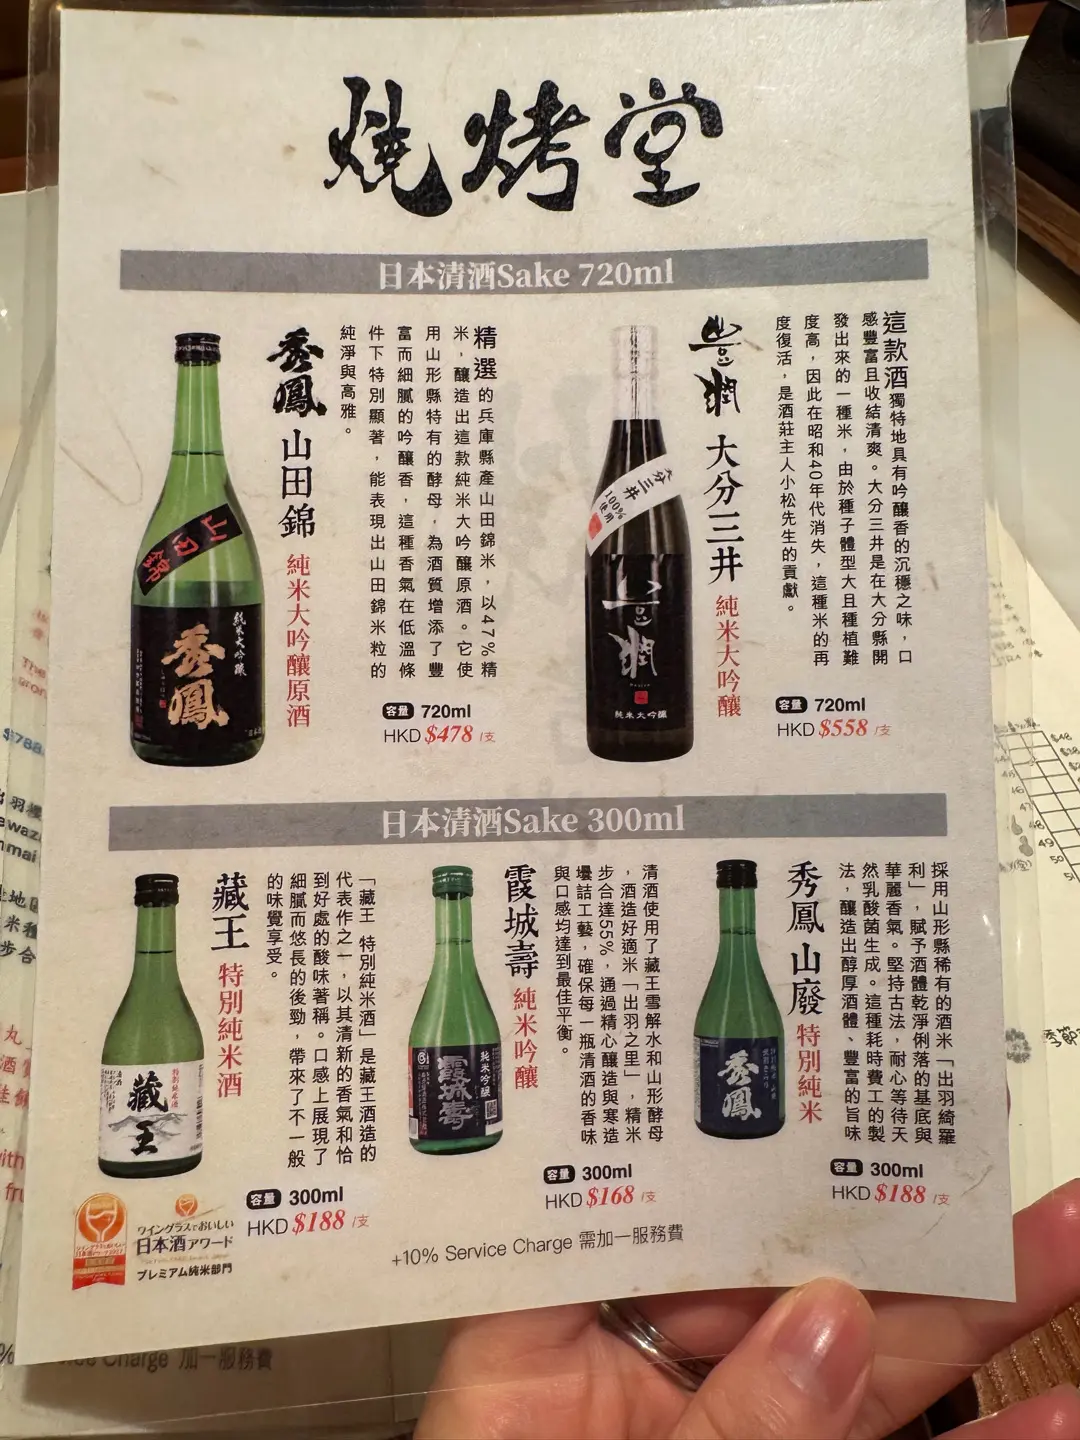 燒烤堂
日本清酒Sake 720ml
秀鳳 山田錦 純米大吟釀原酒
精選的兵庫縣產山田錦米，以47%精
米，釀造出這款純米大吟釀原酒。它使
用山形縣特有的酵母，為酒質增添了豐
富而細膩的吟釀香，這種香氣在低溫條
件下特別顯著，能表現出山田錦米粒的
純淨與高雅。
容量 720ml
HKD $478 /支
山田錦
純米大吟釀
秀鳳
豊潤 大分三井 純米大吟釀
這款酒獨特地具有吟釀香的沉穩之味，口
感豐富且收結清爽。大分三井是在大分縣開
發出來的一種米，由於種子體型大且種植難
度高，因此在昭和40年代消失，這種米的再
度復活，是酒莊主人小松先生的貢獻。
容量 720ml
HKD $558 /支
大分三井
100%
使用
豊潤
純米大吟醸
日本清酒Sake 300ml
藏王 特別純米酒
「藏王 特別純米酒」是藏王酒造的
代表作之一，以其清新的香氣和恰
到好處的酸味著稱。口感上展現了
細膩而悠長的後勁，帶來了不一般
的味覺享受。
容量 300ml
HKD $188 /支
特別純米酒
藏王
霞城壽 純米吟釀
清酒使用了藏王雪解水和山形酵母
，酒造好適米「出羽之里」，精米
步合達55%，通過精心釀造與寒造
壘詰工藝，確保每一瓶清酒的香味
與口感均達到最佳平衡。
容量 300ml
HKD $168 /支
純米吟醸
霞城壽
秀鳳 山廢 特別純米
採用山形縣稀有的酒米「出羽綺羅
利」，賦予酒體乾淨俐落的基底與
華麗香氣。堅持古法，耐心等待天
然乳酸菌生成。這種耗時費工的製
法，釀造出醇厚酒體、豐富的旨味
容量 300ml
HKD $188 /支
秀鳳
ワイングラスでおいしい
日本酒アワード
プレミアム純米部門
+10% Service Charge 需加一服務費
Charge 加一服務費
$788